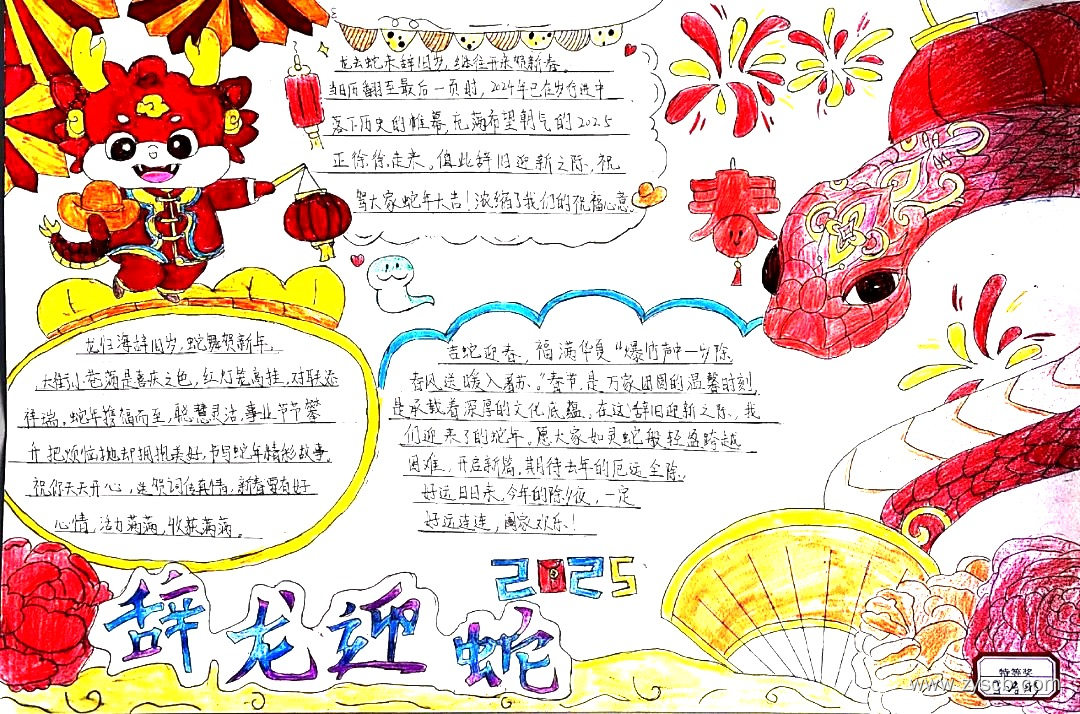 龙去蛇来辞旧岁，继往开来贺新春。
当日历翻至最后一页时，2024年已在岁行进中
落下历史的帷幕，充满希望朝气的2025
正徐徐走来。值此辞旧迎新之际，祝
贺大家蛇年大吉！浓缩了我们的祝福心意。
春
龙归海辞旧岁，蛇舞贺新年。
大街小巷满是喜庆之色，红灯笼高挂，对联添
祥瑞，蛇年携福而至，聪慧灵活，事业节节攀
升把烦恼抛却拥抱美好，书写蛇年精彩故事。
祝你天天开心，送贺词传真情，新春要有好
心情，活力满满，收获满满。
吉蛇迎春，福满华夏"爆竹声中一岁除
春风送暖入屠苏。"春节，是万家团圆的温馨时刻
是承载着深厚的文化底蕴。在这辞旧迎新之际，我
们迎来了的蛇年。愿大家如灵蛇般轻盈跨越
困难，开启新篇，期待去年的厄运全除
好运日日来，今年的除夕夜，一定
好运连连，阖家欢乐！
2025
辞龙迎蛇
特等奖
www.zyscb.com